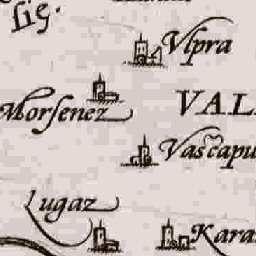 lig.
Vlpra
Morſenez
VAL
Vaſcapu
Lugaz
Kara